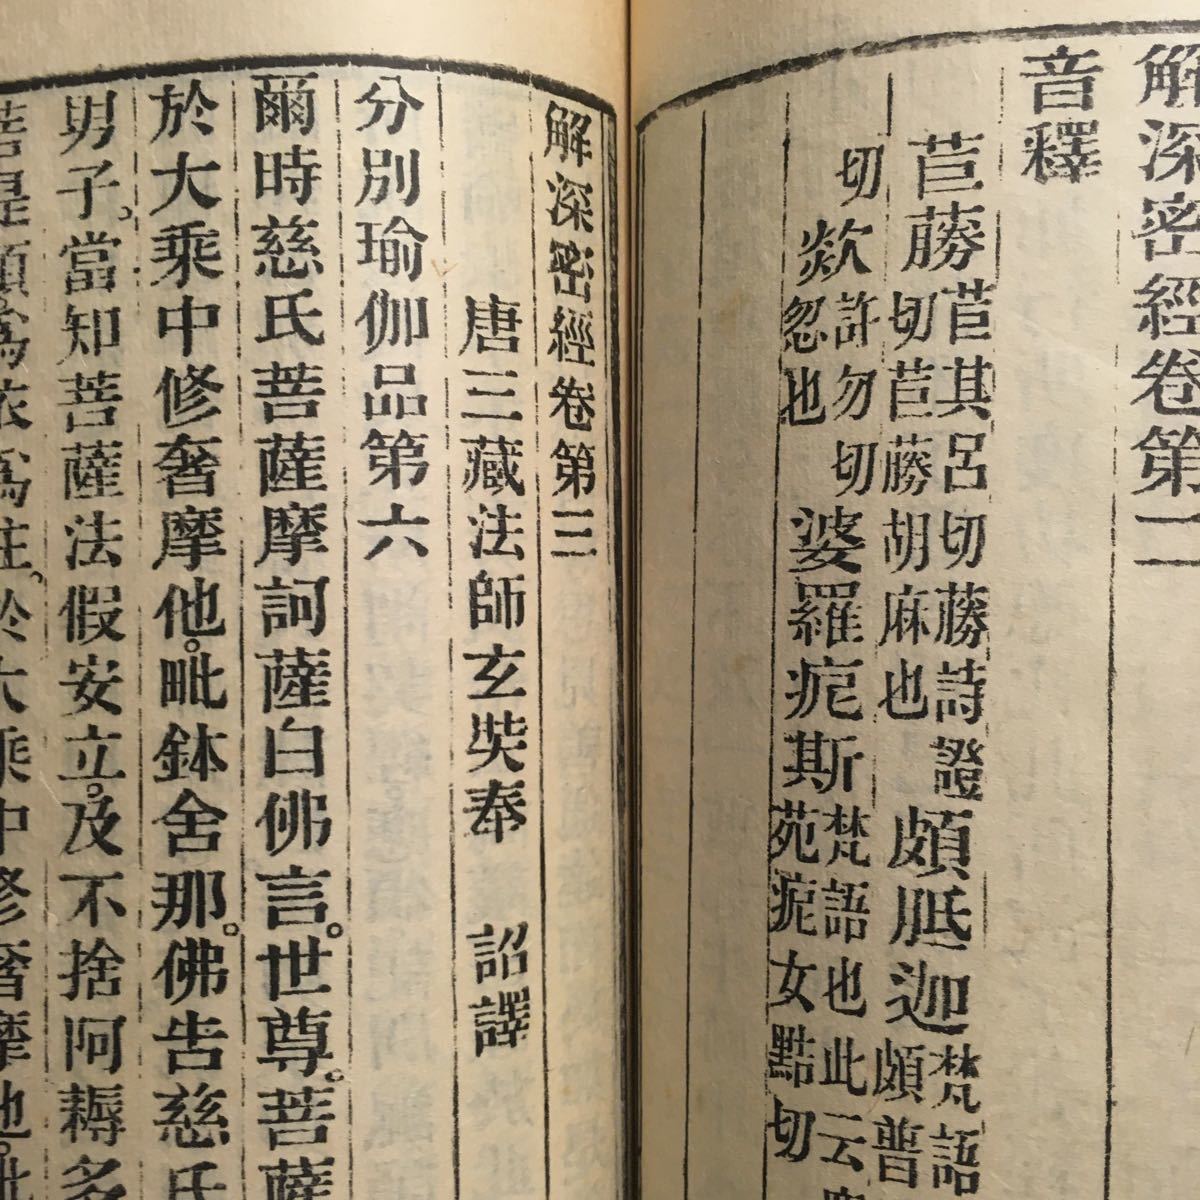 解深密經卷第二
音釋
苣蕂苣其呂切蕂詩證切苣蕂胡麻也頗胝迦梵語頗普
切欻許勿切忽也婆羅痆斯梵語也此云鹿苑痆女黠切
解深密經卷第三
唐三藏法師玄奘奉　詔譯
分別瑜伽品第六
爾時慈氏菩薩摩訶薩白佛言。世尊。菩薩
於大乘中修奢摩他。毗鉢舍那。佛告慈氏
男子。當知菩薩法假安立。及不捨阿耨多
菩提願。為依為住。於大乘中修奢摩他。毗